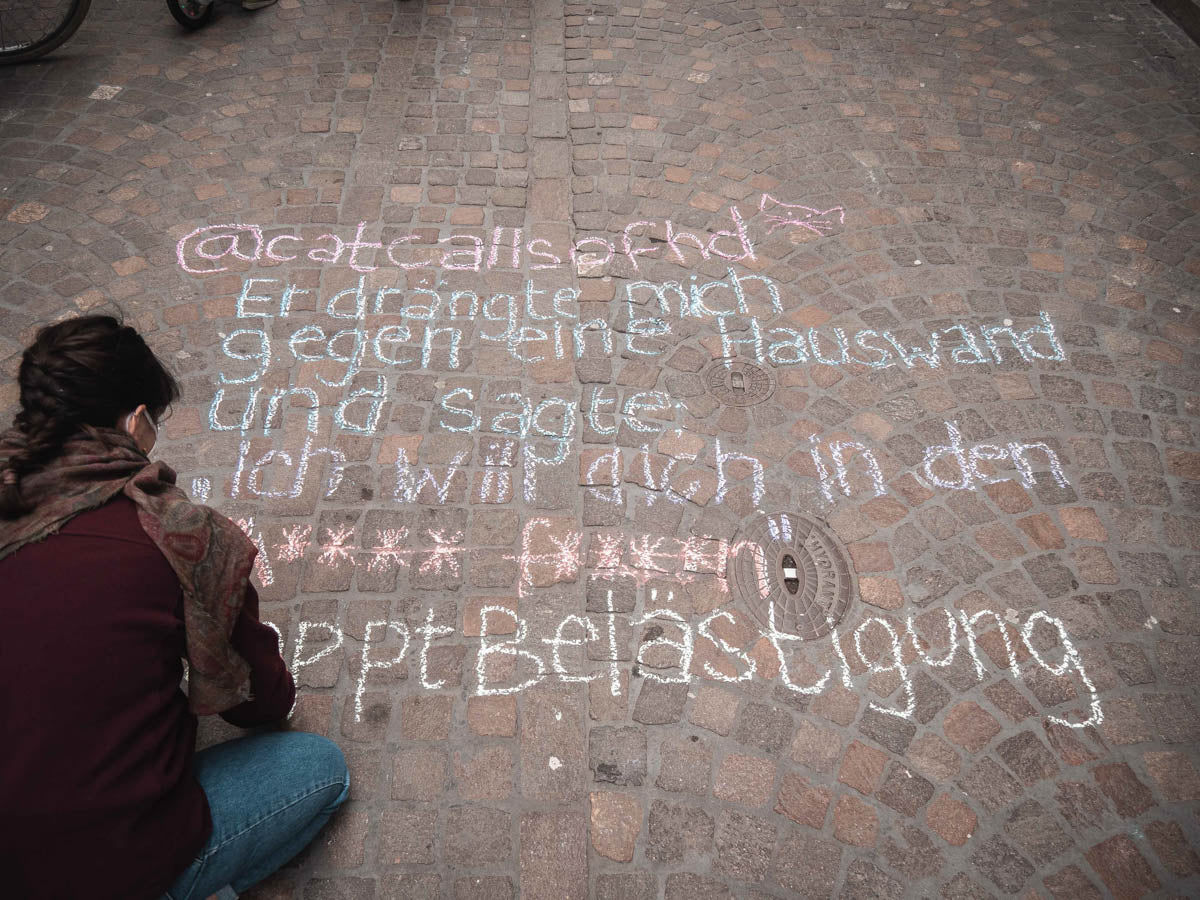 @catcallsofhd
Er drängte mich
gegen eine Hauswand
und sagte:
„Ich will dich in den
A**** f***n"
oppt Belästigung